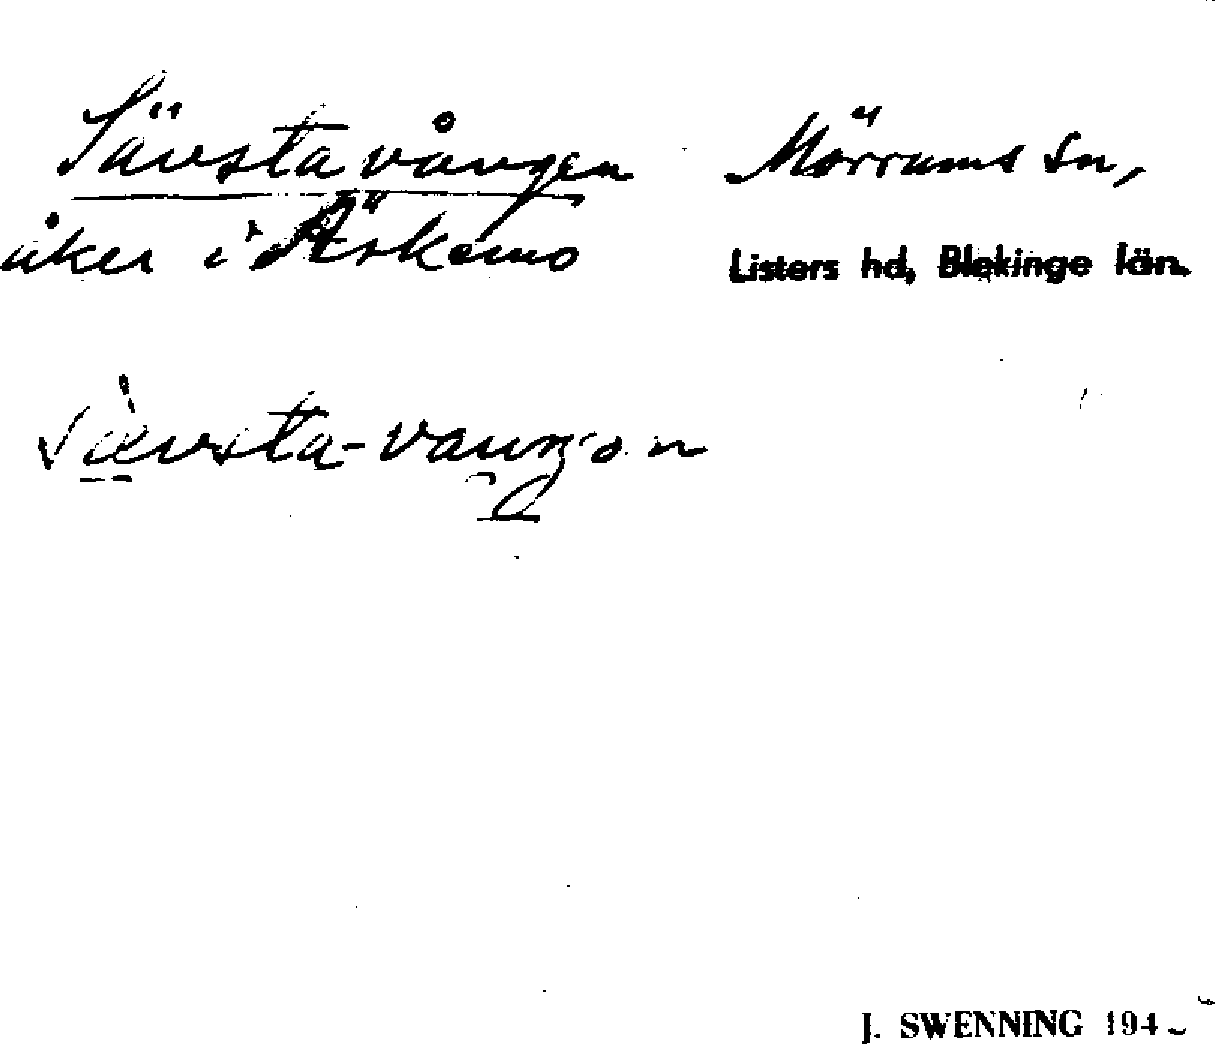 Sävstavången Mörrums sn,
åker i Äskemo
Listers hd, Blekinge län.
sävsta-vaungon
J. SWENNING 194